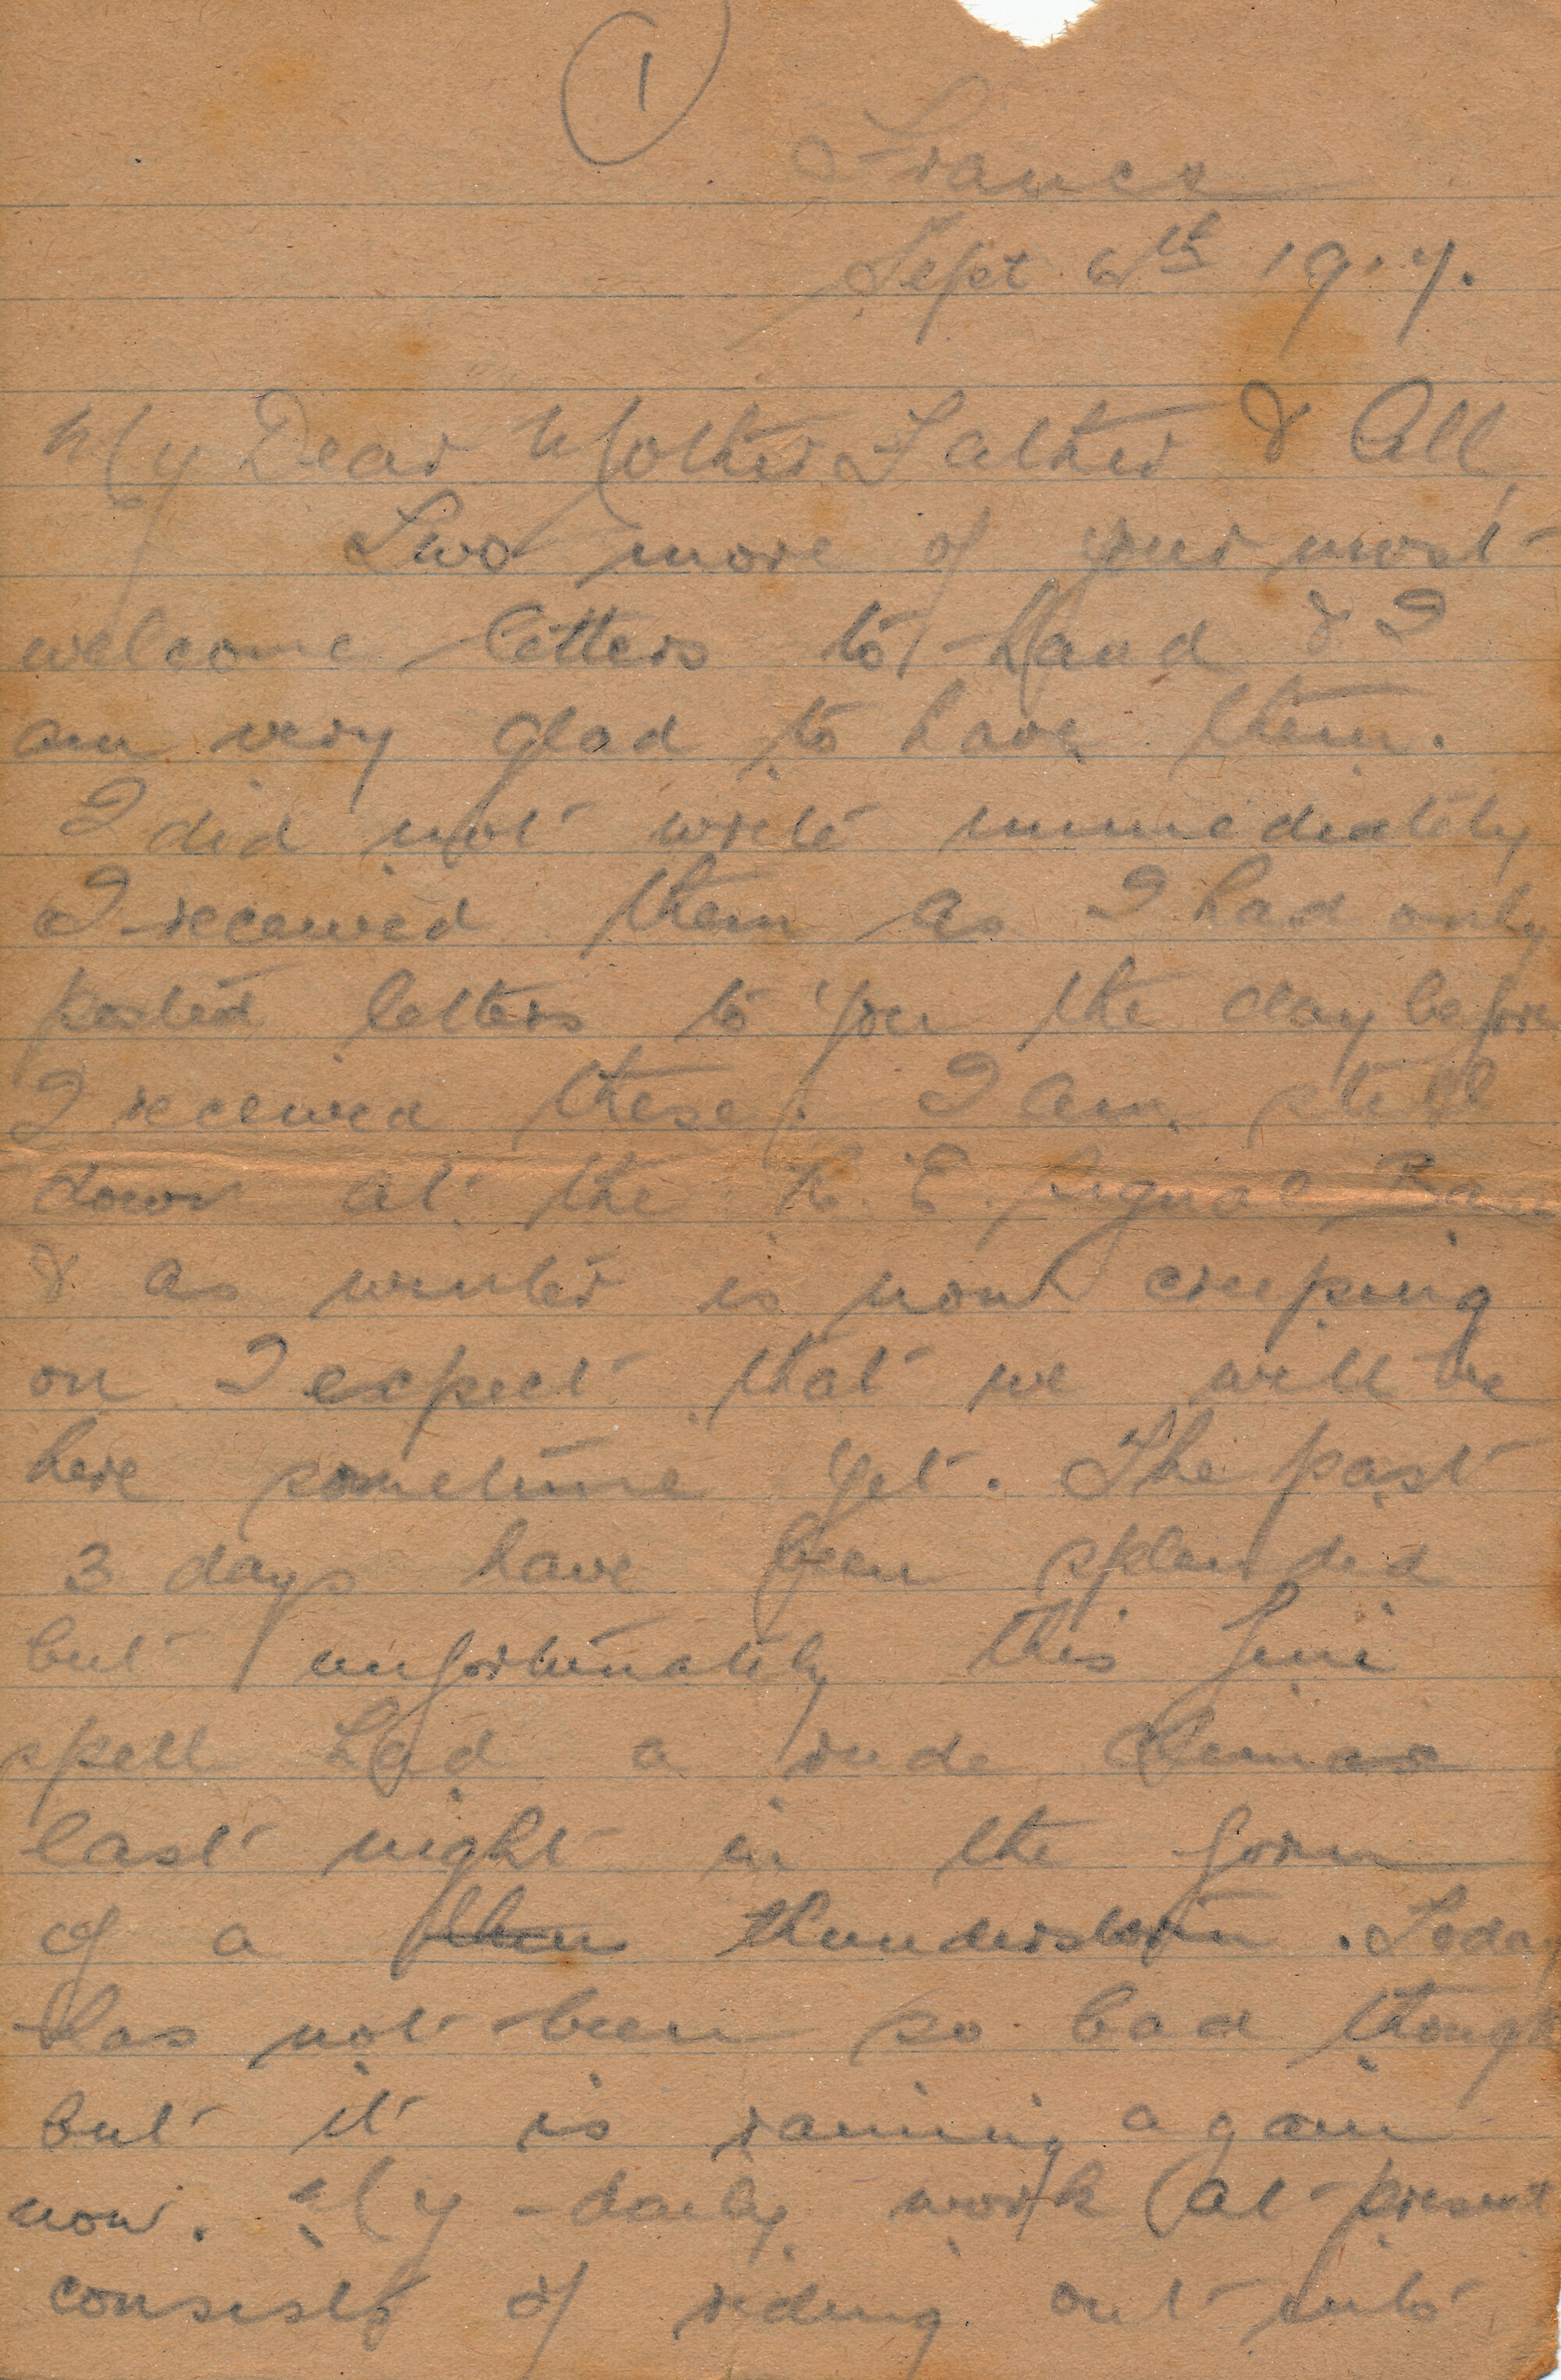 1
France
Sept 6th 1917.
My Dear Mother Father & All,
Two more of your most
welcome letters to hand & I
am very glad to have them.
I did not write immediately
I received them as I had only
posted letters to you the day before
I received these. I am still
down at the R. E. Signal
& as winter is now creeping
on I expect that we will be
here sometime yet. The past
3 days have been splendid
but unfortunately this fine
spell had a rude climax
last night in the form
of a thunderstorm. Today
has not been so bad though
but it is raining again
now. My daily work at present
consists of riding out into